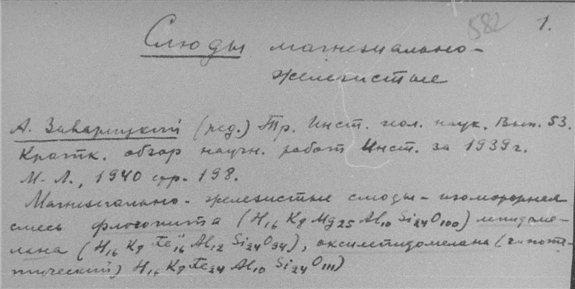 582 1.
Слюды магнезиально-
железистые
А. Заварицкий (ред.) Тр. Инст. геол. наук. Вып. 53.
Кратк. обзор научн. работ Инст. за 1939 г.
М.-Л., 1940 стр. 198.
Магнезиально-железистые слюды - изоморфная
смесь флогопита (H16 K8 Mg25 Al10 Si24 O100) лепидоме-
лана (H16 K8 Al12 Si24 O94), оксилепидомелана (гипоте-
тический) H16 K8 Fe24 Al10 Si24 O111)